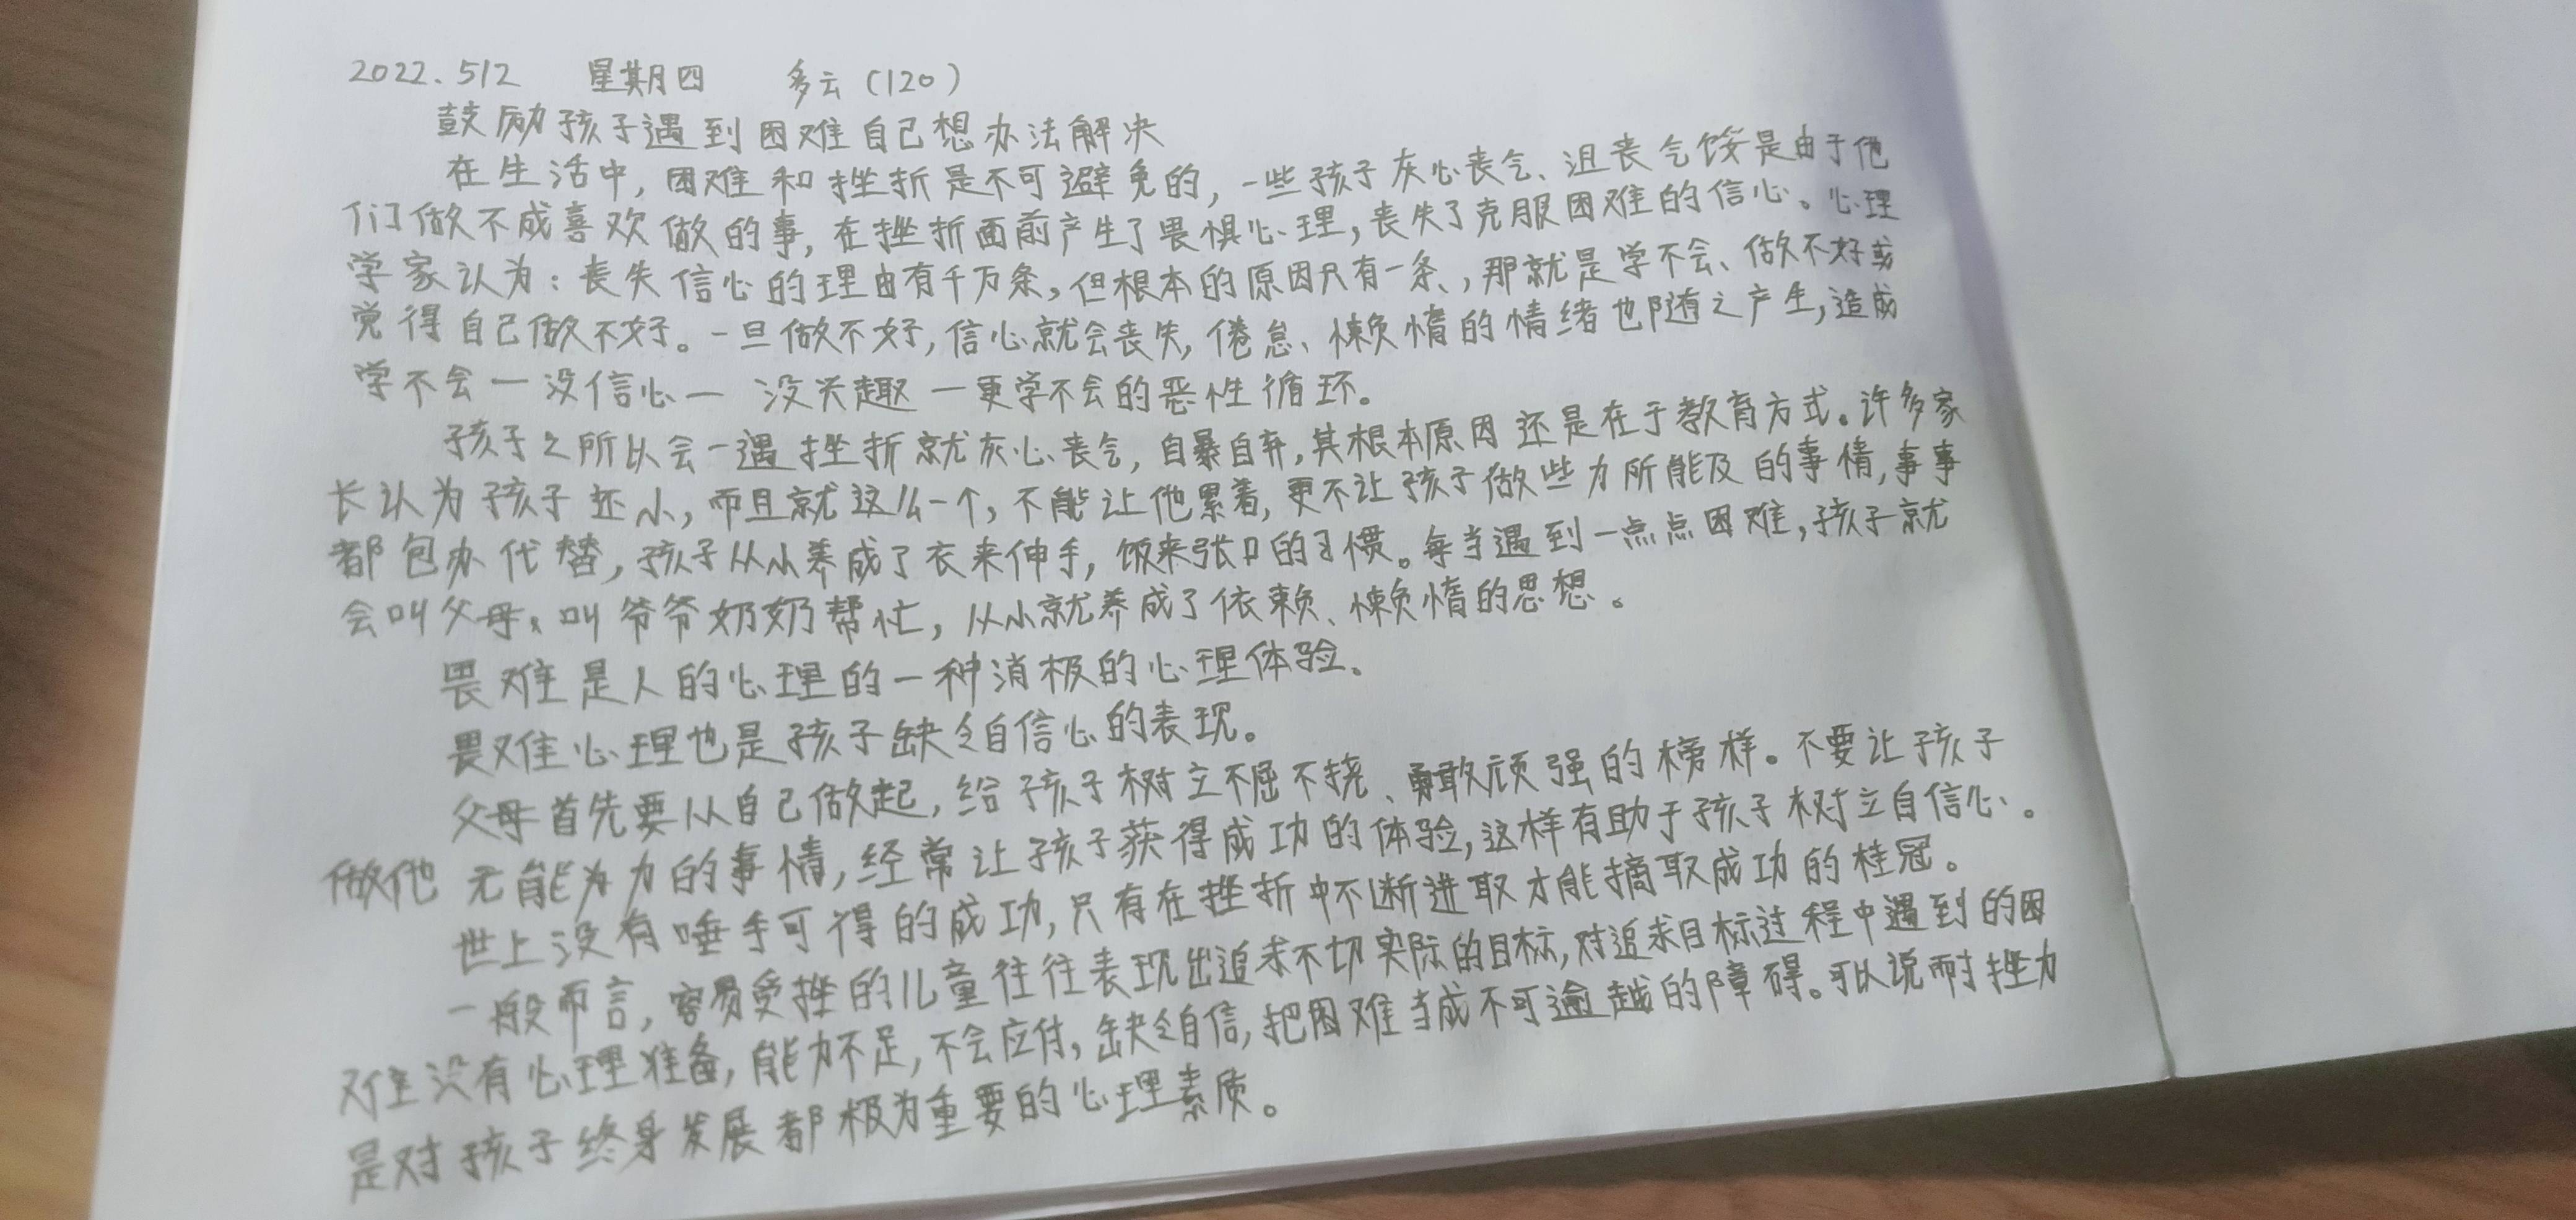 2022.512 星期四 多云(120)
鼓励孩子遇到困难自己想办法解决
在生活中,困难和挫折是不可避免的,一些孩子灰心丧气、沮丧气馁是由于他
们做不成喜欢做的事,在挫折面前产生了畏惧心理,丧失了克服困难的信心。心理
学家认为:丧失信心的理由有千万条,但根本的原因只有一条,那就是学不会、做不好或
觉得自己做不好。一旦做不好,信心就会丧失,倦怠、懒惰的情绪也随之产生,造成
学不会一没信心一没兴趣一更学不会的恶性循环。
孩子之所以会一遇挫折就灰心丧气,自暴自弃,其根本原因还是在于教育方式。许多家
长认为孩子还小,而且就这么一个,不能让他累着,更不让孩子做些力所能及的事情,事事
都包办代替,孩子从小养成了衣来伸手,饭来张口的习惯。每当遇到一点点困难,孩子就
会叫父母,叫爷爷奶奶帮忙,从小就养成了依赖、懒惰的思想。
畏难是人的心理的一种消极的心理体验。
畏难心理也是孩子缺乏自信心的表现。
父母首先要从自己做起,给孩子树立不屈不挠、勇敢顽强的榜样。不要让孩子
做他无能为力的事情,经常让孩子获得成功的体验,这样有助于孩子树立自信心。
世上没有唾手可得的成功,只有在挫折中不断进取才能摘取成功的桂冠。
一般而言,容易受挫的儿童往往表现出追求不切实际的目标,对追求目标过程中遇到的困
难没有心理准备,能力不足,不会应付,缺乏自信,把困难当成不可逾越的障碍。可以说耐挫力
是对孩子终身发展都极为重要的心理素质。